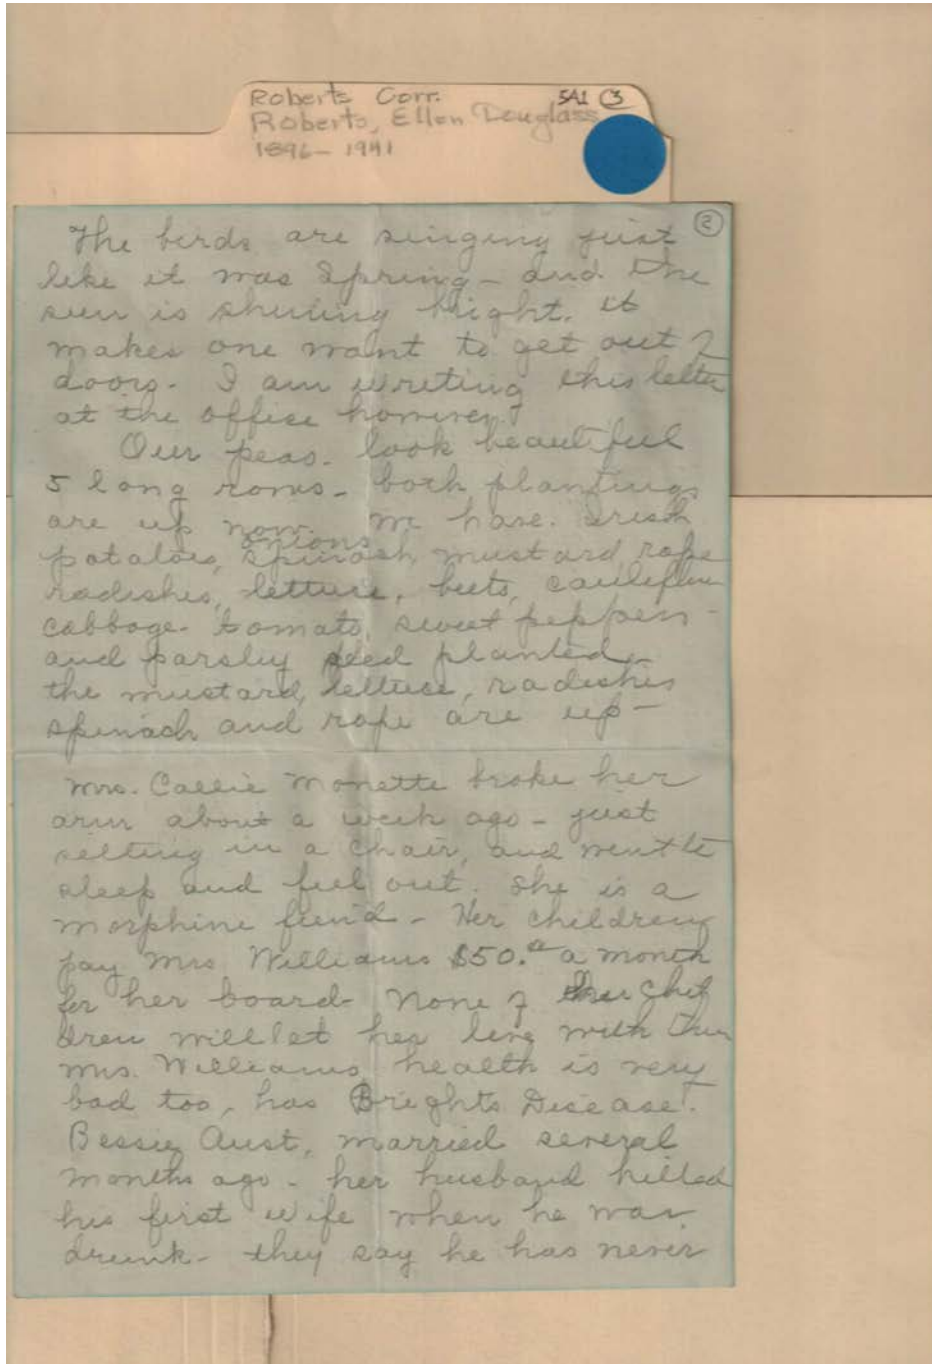 Roberts Corr. 5A1 (3)
Roberts, Ellen Douglass
1896-1941
(2)
The birds are singing just
like it was Spring - and the
sun is shining bright. it
makes one want to get out of
doors. I am writing this letter
at the office however.
Our peas. look beautiful
5 long rows - both plantings
are up now. We have. irish
onions
potatoes, spinach, mustard, rape
radishes, lettuce, beets, cauliflower
cabbage - tomato, sweet peppers -
and parsley seed planted.
the mustard, lettuce, radishes
spinach and rape are up -
Mrs. Callie Monette broke her
arm about a week ago - just
sitting in a chair, and went to
sleep and fell out. She is a
morphine fiend - Her children
pay Mrs Williams $50.00 a month
for her board - None of her chil
dren will let her live with them
Mrs. Williams health is very
bad too, has Brights Disease.
Bessie Aust, married several
months ago - her husband killed
his first wife when he was
drunk - they say he has never